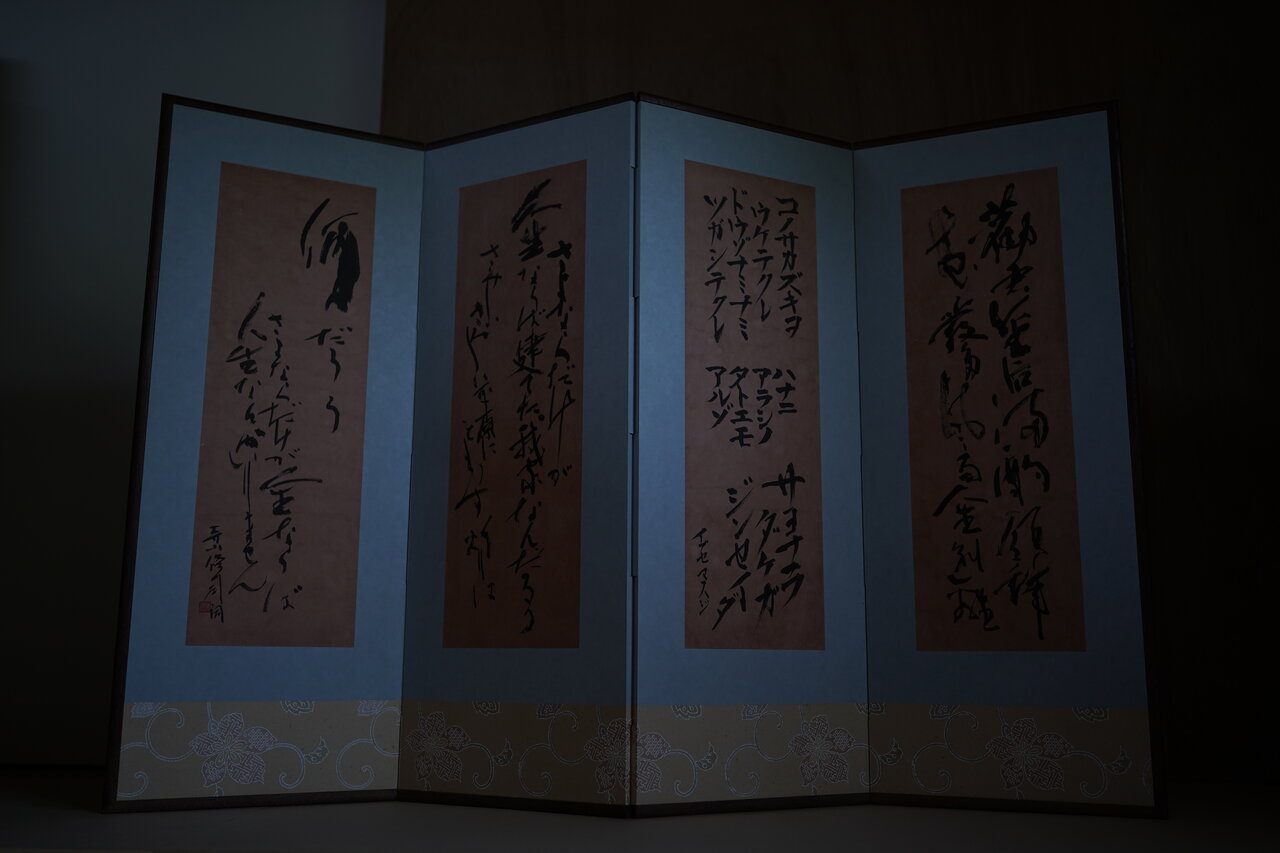 勧君金屈卮満酌不須辞
花發多風雨人生足別離
コノサカズキヲ
ウケテクレ
ドウゾナミナミ
ツガシテクレ
ハナニ
アラシノ
タトエモ
アルゾ
サヨナラ
ダケガ
ジンセイダ
イブセマスジ
さよならだけが
人生ならば建てた我家なんだろう
さみしいさみしい平原に
ともす灯は
何だろう
さよならだけが人生ならば
人生なんかいりません
寺山修司